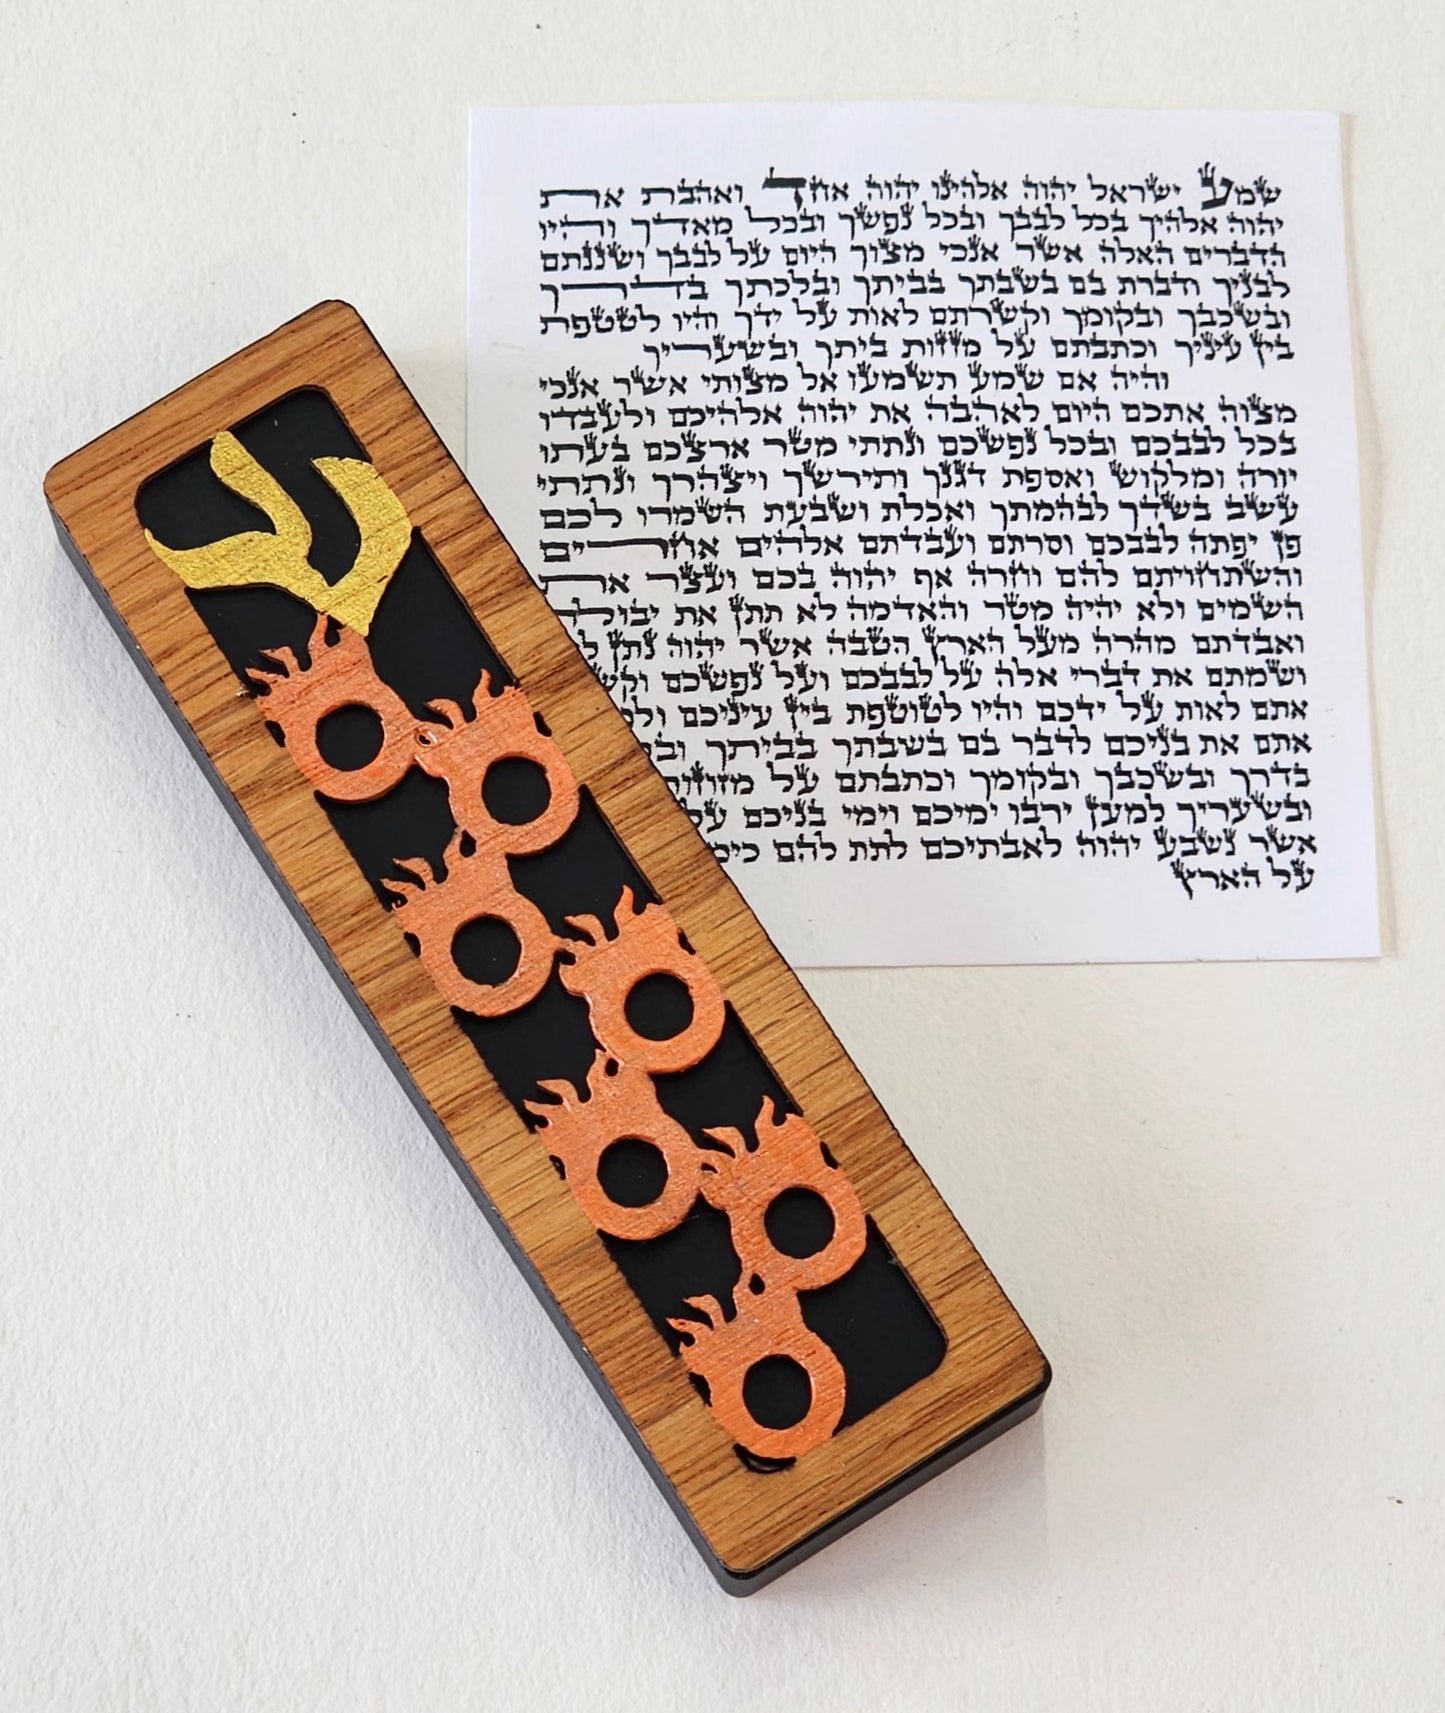 ש
שמע ישראל יהוה אלהינו יהוה אחד ואהבת את
יהוה אלהיך בכל לבבך ובכל נפשך ובכל מאדך והיו
הדברים האלה אשר אנכי מצוך היום על לבבך ושננתם
לבניך ודברת בם בשבתך בביתך ובלכתך בדרך
ובשכבך ובקומך וקשרתם לאות על ידך והיו לטטפת
בין עיניך וכתבתם על מזזות ביתך ובשעריך
והיה אם שמע תשמעו אל מצותי אשר אנכי
מצוה אתכם היום לאהבה את יהוה אלהיכם ולעבדו
בכל לבבכם ובכל נפשכם ונתתי מטר ארצכם בעתו
יורה ומלקוש ואספת דגנך ותירשך ויצהרך ונתתי
עשב בשדך לבהמתך ואכלת ושבעת השמרו לכם
פן יפתה לבבכם וסרתם ועבדתם אלהים אחרים
והשתחויתם להם וחרה אף יהוה בכם ועצר את
השמים ולא יהיה מטר והאדמה לא תתן את יבולה
ואבדתם מהרה מעל הארץ הטבה אשר יהוה נתן
ושמתם את דברי אלה על לבבכם ועל נפשכם
אתם לאות על ידכם והיו לטוטפת בין עיניכם
אתם את בניכם לדבר בם בשבתך בביתך
בדרך ובשכבך ובקומך וכתבתם על מזוזות
ובשעריך למען ירבו ימיכם וימי בניכם על
אשר נשבע יהוה לאבתיכם לתת להם
על הארץ